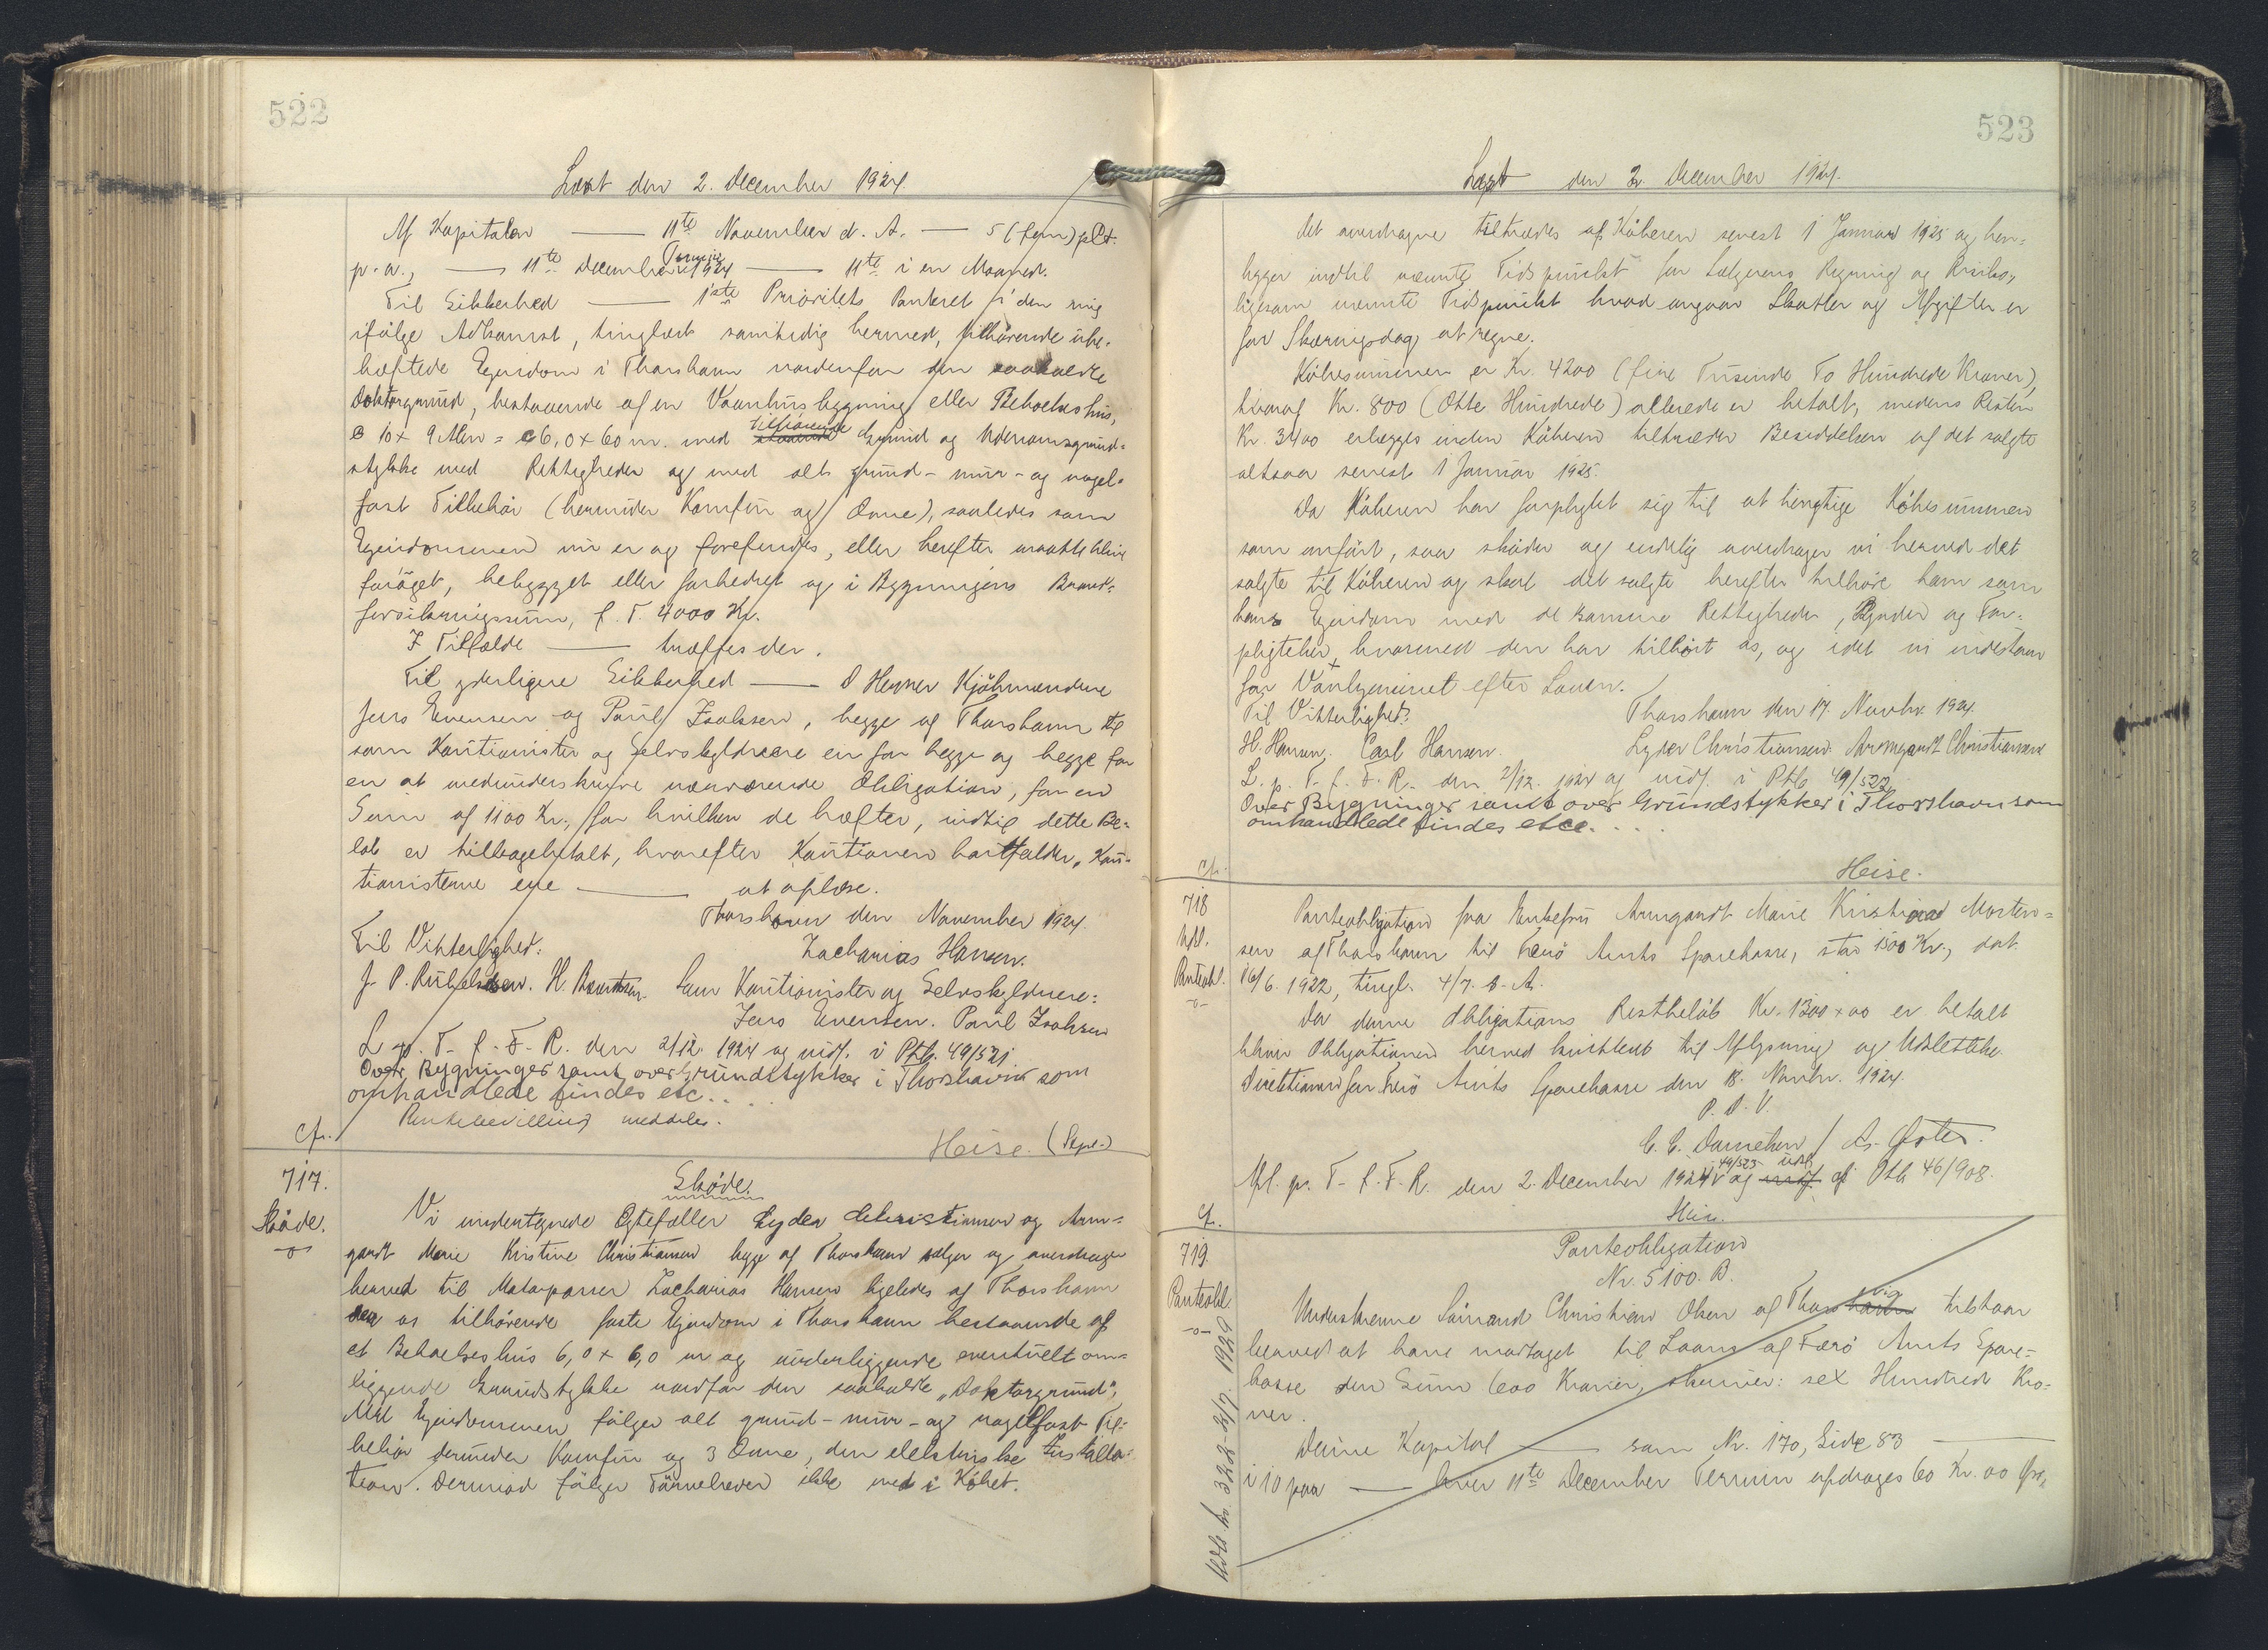 522
Læst den 2. December 1924.
Af Kapitalen — 11te November d. A. — 5 (fem) pCt.
p. a., — 11te December Termin 1924 — 11te i en Maaned.
Til Sikkerhed — 1ste Prioritets Panteret i den mig
ifølge Adkomst, tinglæst samtidig hermed, tilhørende ube-
hæftede Ejendom i Thorshavn nordenfor den saakaldte
Doktorgrund, bestaaende af en Vaanhusbygning eller Beboelseshus,
10 x 9 Alen = 6,0 x 60 m. med tilhørende Grund og Udenomsgrund-
stykke med Rettigheder og med alt grund- mur- og nagel-
fast Tilbehør (herunder Komfur og Ovne), saaledes som
Ejendommen nu er og forefindes, eller herefter maatte blive
forøget, bebygget eller forbedret og i Bygningens Brand-
forsikringssum, f. T. 4000 Kr.
I Tilfælde — træffes der.
Til yderligere Sikkerhed — D Herrer Kjøbmændene
Jens Evensen og Paul Isaksen, begge af Thorshavn til
som Kautionister og Selvskyldnere en for begge og begge for
en at medunderskrive nærværende Obligation, for en
Sum af 1100 Kr., for hvilken de hæfter, indtil dette Be-
løb er tilbagebetalt, hvorefter Kautionen bortfalder. Kau-
tionisterne eje — at oplæse.
Thorshavn den November 1924.
Til Vitterlighed: Zacharias Hansen.
J. P. H. Som Kautionister og Selvskyldnere:
Jens Evensen. Paul Isaksen
L. p. T. f. F. R. den 2/12. 1924 og indf. i Ptb. 49/521
Over Bygninger samt over Grundstykker i Thorshavn som
omhandlede findes etc. . . .
Pantebevilling meddeles.
Heise. (Stpl.)
cfr.
717.
Skøde.
-o-
Skøde.
Vi undertegnede Ægtefæller Lyder Christiansen og Arm-
gardt Marie Kristine Christiansen begge af Thorshavn sælger og overdrager
herved til Motorpasser Zacharias Hansen ligeledes af Thorshavn
den os tilhørende faste Ejendom i Thorshavn bestaaende af
et Beboelseshus 6,0 x 6,0 m og underliggende eventuelt om-
liggende Grundstykke nordfor den saakaldte „Doktorgrund“,
Med Ejendommen følger alt grund- mur- og nagelfast Til-
behør derunder Komfur og 3 Ovne, den elektriske Installa-
tion. Derimod følger Tørvehaver ikke med i Købet.
523
Læst den 2. December 1924.
Det overdragne tiltrædes af Køberen senest 1 Januar 1925 og hen-
ligger indtil nævnte Tidspunkt for Sælgerens Regning og Risiko,
ligesom nævnte Tidspunkt hvad angaar Skatter og Afgifter er
for Skæringsdag at regne.
Købesummen er Kr. 4200 (fire Tusinde To Hundrede Kroner),
hvoraf Kr. 800 (Otte Hundrede) allerede er betalt, medens Resten
Kr. 3400 erlægges inden Køberen tiltræder Besiddelsen af det solgte
altsaa senest 1 Januar 1925.
Da Køberen har forpligtet sig til at berigtige Købesummen
som anført, saa skøder og endelig overdrager vi herved det
solgte til Køberen og skal det solgte herefter tilhøre ham som
hans Ejendom med de samme Rettigheder, Byrder og For-
pligtelser, hvormed den har tilhørt os, og idet vi indestaar
for Vanhjemmel efter Loven.
Til Vitterlighed: Thorshavn den 17. Novbr. 1924.
H. Hansen, Carl Hansen. Lyder Christiansen. Armgardt Christiansen
L. p. T. f. F. R. den 2/12. 1924 og indf. i Ptb. 49/522
Over Bygninger samt over Grundstykker i Thorshavn som
omhandlede findes etc. . . . .
Heise.
cfr.
718
Udsl.
Panteobl.
-o-
Panteobligation fra Enkefru Armgardt Marie Kristine Morten-
sen af Thorshavn til Færø Amts Sparekasse, stor 1500 Kr., dat.
16/6. 1922, tingl. 4/7. s. A.
Da denne Obligations Restbeløb Kr. 1300 x 00 er betalt
bliver Obligationen herved kvitteret til Aflysning og Udslettelse.
Direktionen for Færø Amts Sparekasse den 18. Novbr. 1924.
P. D. V.
C. C. Danielsen / A.
Afl. p. T. f. F. R. den 2. December 1924 49/523 og udsl. af Ptb 46/908.
Heise.
cfr.
719.
Panteobl.
-o-
Panteobligation
Nr. 5100. B.
Underskrevne Christian Olsen af Thorshavn tilstaar
herved at have modtaget til Laans af Færø Amts Spare-
kasse den Sum 600 Kroner, skriver: sex Hundred Kro-
ner.
Denne Kapital — som Nr. 170, Side 83 —
i 10 paa — hver 11te December Termin afdrages 60 Kr. 00 Øre,